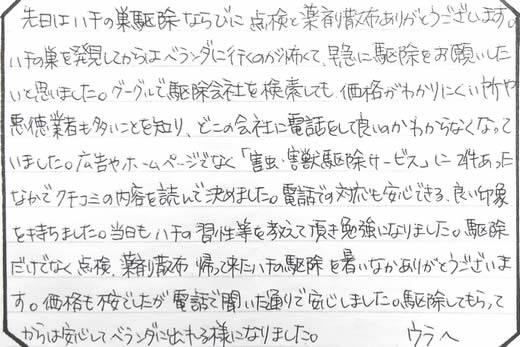 先日はハチの巣駆除ならびに点検と薬剤散布ありがとうございます。
ハチの巣を発見してからはベランダに行くのが怖くて、早急に駆除をお願いした
いと思いました。グーグルで駆除会社を検索しても、価格がわかりにくい所や
悪徳業者も多いことを知り、どこの会社に電話をして良いのかわからなくなって
いました。広告やホームページでなく「害虫・害獣駆除サービス」に2件あった
なかでクチコミの内容を読んで決めました。電話での対応も安心できる、良い印象
を持ちました。当日もハチの習性等を教えて頂き勉強になりました。駆除
だけでなく点検、薬剤散布 帰って来たハチの駆除を暑いなかありがとうございま
す。価格も不安でしたが電話で聞いた通りで安心しました。駆除してもらって
からは安心してベランダに出れる様になりました。 ウラへ